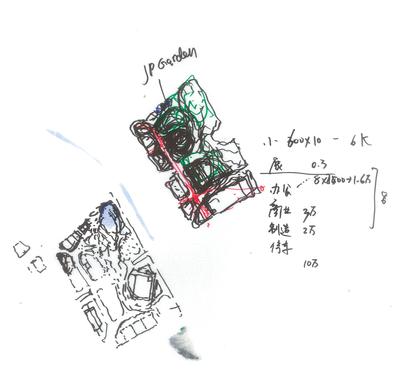 JP Garden
小 600x10 - 6K
展 0.3
办公 8x1500+1.6万
商业 3万
制造 2万
停车
10万
8